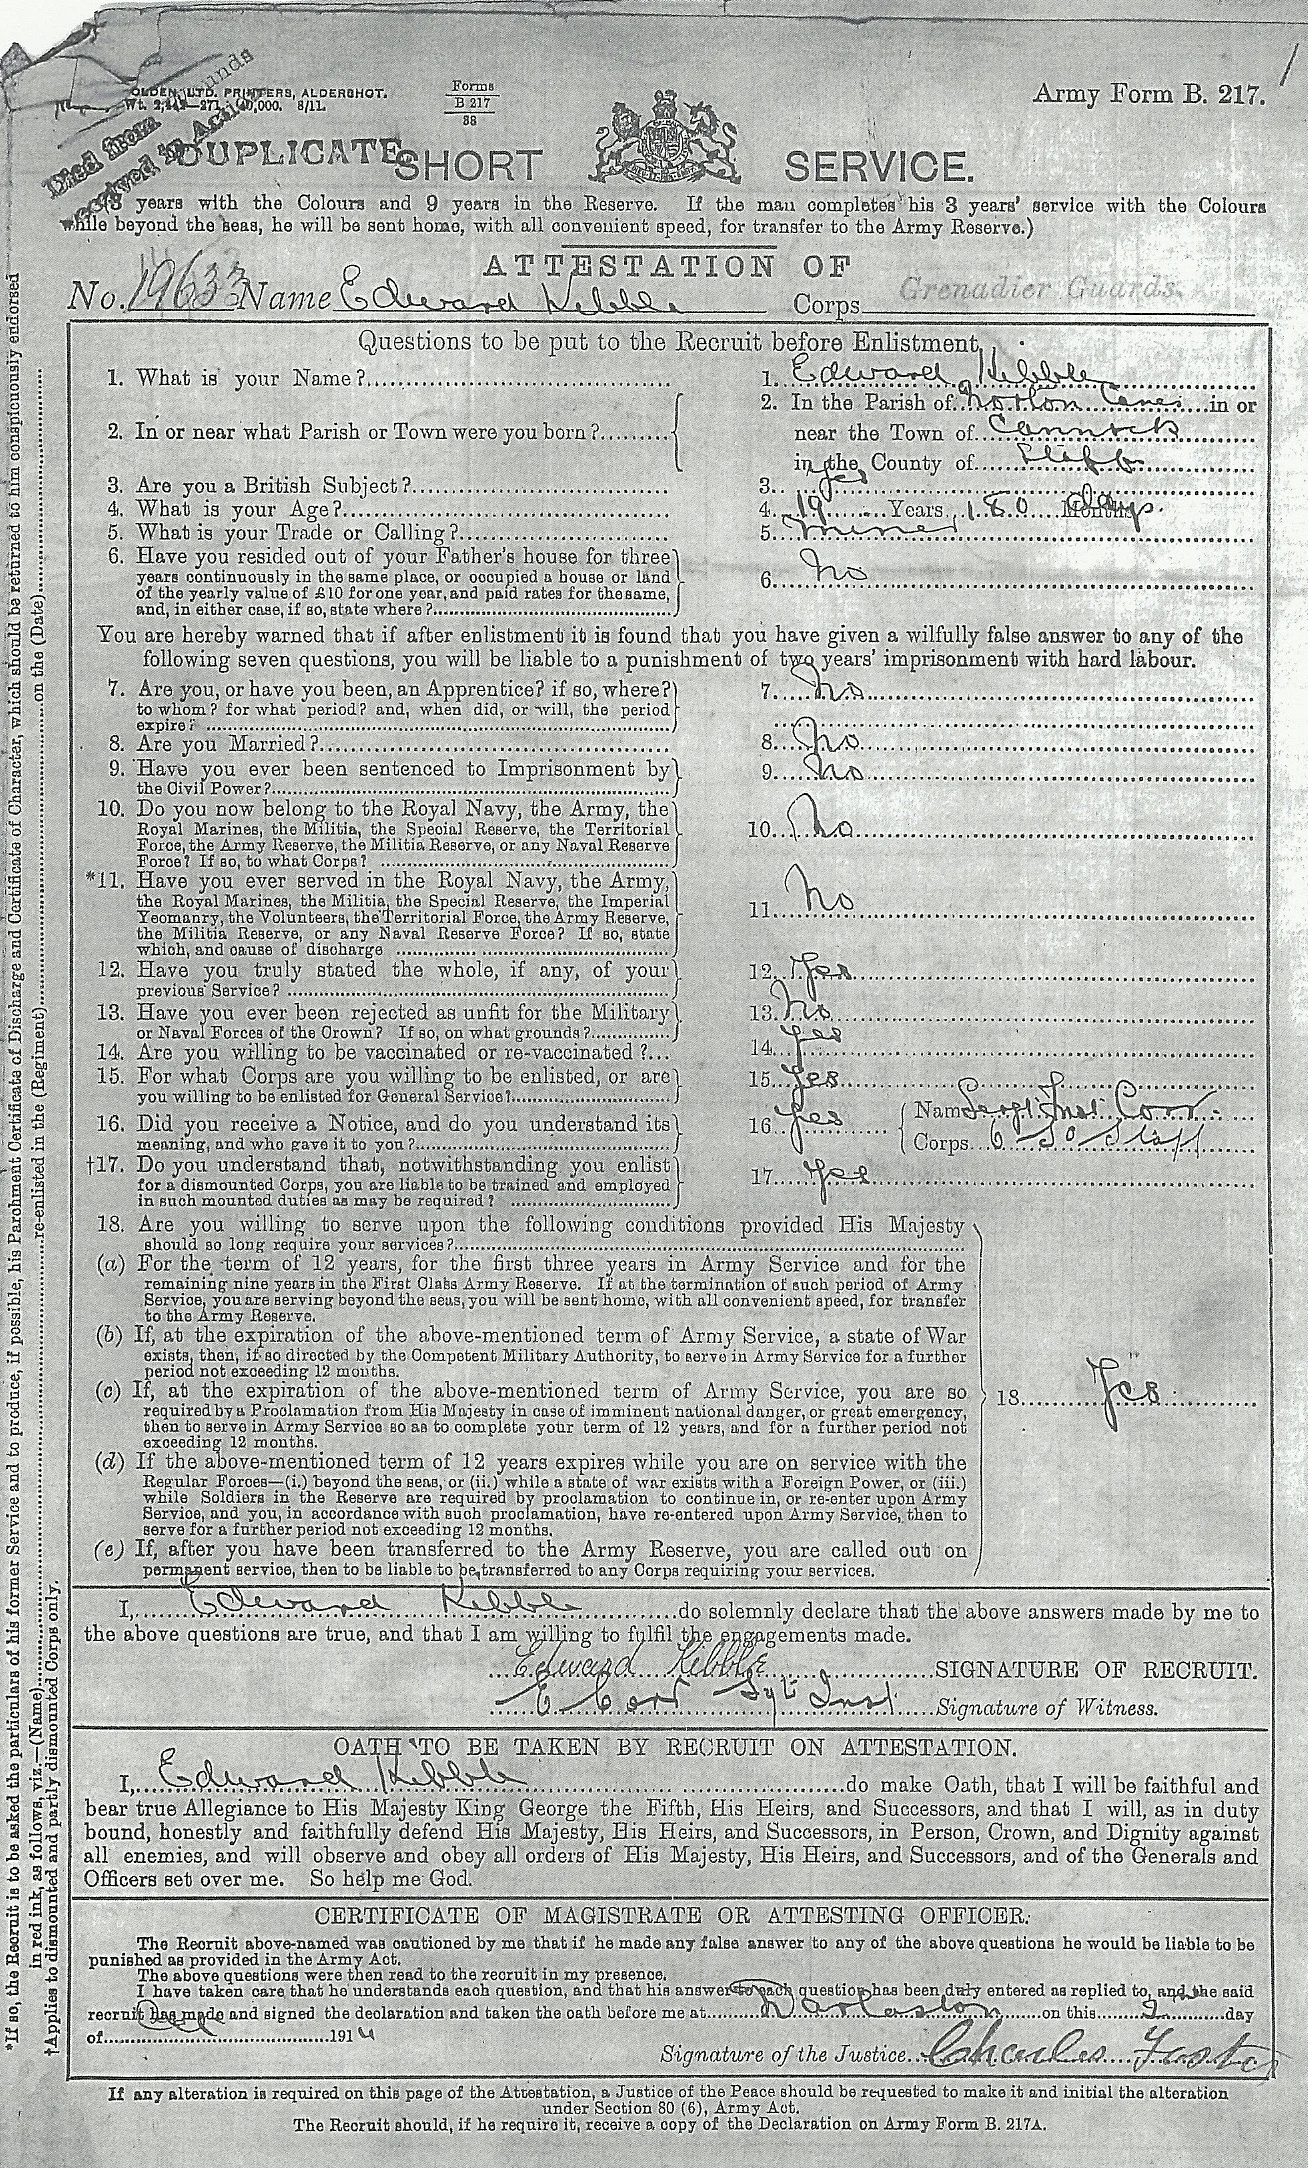 Died from wounds
received in Action
OLDEN, LTD. PRINTERS, ALDERSHOT.
40,000. 8/11.
Forms
B 217
38
Army Form B. 217.
DUPLICATE
SHORT SERVICE.
(3 years with the Colours and 9 years in the Reserve. If the man completes his 3 years' service with the Colours
while beyond the seas, he will be sent home, with all convenient speed, for transfer to the Army Reserve.)
ATTESTATION OF
No. 19633 Name Edward Kibble Corps Grenadier Guards.
Questions to be put to the Recruit before Enlistment.
1. What is your Name? 1. Edward Kibble
2. In or near what Parish or Town were you born? 2. In the Parish of Norton Canes in or
near the Town of Cannock
in the County of Staffs
3. Are you a British Subject? 3. Yes
4. What is your Age? 4. 19 Years 180 Months days.
5. What is your Trade or Calling? 5. Miner
6. Have you resided out of your Father's house for three
years continuously in the same place, or occupied a house or land
of the yearly value of £10 for one year, and paid rates for the same,
and, in either case, if so, state where? 6. No
You are hereby warned that if after enlistment it is found that you have given a wilfully false answer to any of the
following seven questions, you will be liable to a punishment of two years' imprisonment with hard labour.
7. Are you, or have you been, an Apprentice? if so, where?
to whom? for what period? and, when did, or will, the period
expire? 7. No
8. Are you Married? 8. No
9. Have you ever been sentenced to Imprisonment by
the Civil Power? 9. No
10. Do you now belong to the Royal Navy, the Army, the
Royal Marines, the Militia, the Special Reserve, the Territorial
Force, the Army Reserve, the Militia Reserve, or any Naval Reserve
Force? If so, to what Corps? 10. No
*11. Have you ever served in the Royal Navy, the Army,
the Royal Marines, the Militia, the Special Reserve, the Imperial
Yeomanry, the Volunteers, the Territorial Force, the Army Reserve,
the Militia Reserve, or any Naval Reserve Force? If so, state
which, and cause of discharge 11. No
12. Have you truly stated the whole, if any, of your
previous Service? 12. Yes
13. Have you ever been rejected as unfit for the Military
or Naval Forces of the Crown? If so, on what grounds? 13. No
14. Are you willing to be vaccinated or re-vaccinated? 14. Yes
15. For what Corps are you willing to be enlisted, or are
you willing to be enlisted for General Service? 15. Yes
16. Did you receive a Notice, and do you understand its
meaning, and who gave it to you? 16. Yes Name Sergt Inst
Corps 6 So Staff
†17. Do you understand that, notwithstanding you enlist
for a dismounted Corps, you are liable to be trained and employed
in such mounted duties as may be required? 17. Yes
18. Are you willing to serve upon the following conditions provided His Majesty
should so long require your services?
(a) For the term of 12 years, for the first three years in Army Service and for the
remaining nine years in the First Class Army Reserve. If at the termination of such period of Army
Service, you are serving beyond the seas, you will be sent home, with all convenient speed, for transfer
to the Army Reserve.
(b) If, at the expiration of the above-mentioned term of Army Service, a state of War
exists, then, if so directed by the Competent Military Authority, to serve in Army Service for a further
period not exceeding 12 months.
(c) If, at the expiration of the above-mentioned term of Army Service, you are so
required by a Proclamation from His Majesty in case of imminent national danger, or great emergency,
then to serve in Army Service so as to complete your term of 12 years, and for a further period not
exceeding 12 months.
18. Yes
(d) If the above-mentioned term of 12 years expires while you are on service with the
Regular Forces—(i.) beyond the seas, or (ii.) while a state of war exists with a Foreign Power, or (iii.)
while Soldiers in the Reserve are required by proclamation to continue in, or re-enter upon Army
Service, and you, in accordance with such proclamation, have re-entered upon Army Service, then to
serve for a further period not exceeding 12 months.
(e) If, after you have been transferred to the Army Reserve, you are called out on
permanent service, then to be liable to be transferred to any Corps requiring your services.
I, Edward Kibble do solemnly declare that the above answers made by me to
the above questions are true, and that I am willing to fulfil the engagements made.
Edward Kibble SIGNATURE OF RECRUIT.
E Sgt Inst Signature of Witness.
OATH TO BE TAKEN BY RECRUIT ON ATTESTATION.
I, Edward Kibble do make Oath, that I will be faithful and
bear true Allegiance to His Majesty King George the Fifth, His Heirs, and Successors, and that I will, as in duty
bound, honestly and faithfully defend His Majesty, His Heirs, and Successors, in Person, Crown, and Dignity against
all enemies, and will observe and obey all orders of His Majesty, His Heirs, and Successors, and of the Generals and
Officers set over me. So help me God.
CERTIFICATE OF MAGISTRATE OR ATTESTING OFFICER.
The Recruit above-named was cautioned by me that if he made any false answer to any of the above questions he would be liable to be
punished as provided in the Army Act.
The above questions were then read to the recruit in my presence.
I have taken care that he understands each question, and that his answer to each question has been duly entered as replied to, and the said
recruit has made and signed the declaration and taken the oath before me at Darlaston on this 2 day
of 1914
Signature of the Justice Charles Foster
If any alteration is required on this page of the Attestation, a Justice of the Peace should be requested to make it and initial the alteration
under Section 80 (6), Army Act.
The Recruit should, if he require it, receive a copy of the Declaration on Army Form B. 217A.
*If so, the Recruit is to be asked the particulars of his former Service and to produce, if possible, his Parchment Certificate of Discharge and Certificate of Character, which should be returned to him conspicuously endorsed
in red ink, as follows, viz.—(Name) re-enlisted in the (Regiment) on the (Date)
†Applies to dismounted and partly dismounted Corps only.